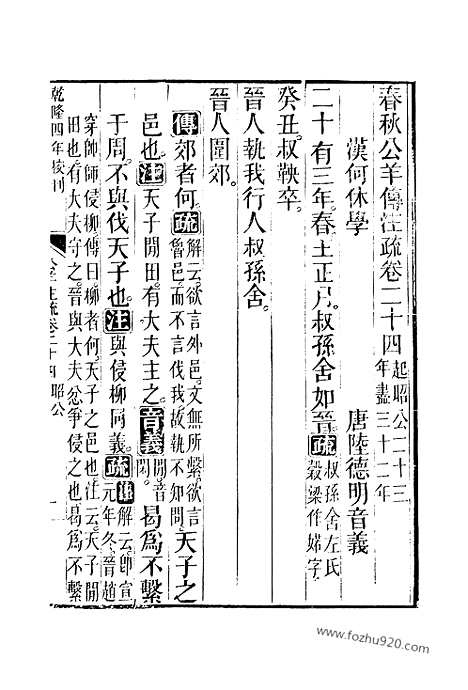 春秋公羊傳注疏卷二十四起昭公二十三
年盡三十二年
漢何休學 唐陸德明音義
二十有三年春王正月。叔孫舍如晉。疏叔孫舍左氏
穀梁作婼字
癸丑。叔鞅卒。
晉人執我行人叔孫舍。
晉人圍郊。
傳郊者何。疏解云。欲言外邑。文無所繫。欲言
魯邑。而不言伐我。故執不知問。天子之
邑也。注天子閒田。有大夫主之。音義閒音
閑。曷為不繫
于周。不與伐天子也。注與侵柳同義。疏注解云。卽宣
元年冬。晉趙
穿帥師侵柳。傳曰。柳者何。天子之邑也。注云。天子閒
田也。有大夫守之。晉與大夫忿爭侵之也。曷為不繫
乾隆四年校刊
公羊注疏卷二十四 昭公
一
www.fozhu920.com